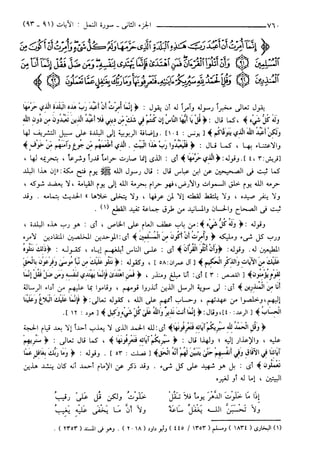 ٧٦٠ الجزء الثانى - سورة النمل : الآيات (٩١ - ٩٣)
﴿ إِنَّمَا أُمِرْتُ أَنْ أَعْبُدَ رَبَّ هَذِهِ الْبَلْدَةِ الَّذِي حَرَّمَهَا وَلَهُ كُلُّ شَيْءٍ وَأُمِرْتُ أَنْ أَكُونَ مِنَ
الْمُسْلِمِينَ ﴿٩١﴾ وَأَنْ أَتْلُوَ الْقُرْآنَ فَمَنِ اهْتَدَى فَإِنَّمَا يَهْتَدِي لِنَفْسِهِ وَمَنْ ضَلَّ فَقُلْ إِنَّمَا
أَنَا مِنَ الْمُنْذِرِينَ ﴿٩٢﴾ وَقُلِ الْحَمْدُ لِلَّهِ سَيُرِيكُمْ آيَاتِهِ فَتَعْرِفُونَهَا وَمَا رَبُّكَ بِغَافِلٍ عَمَّا تَعْمَلُونَ ﴿٩٣﴾
يقول تعالى مخبراً رسوله وآمراً له أن يقول : ﴿ إِنَّمَا أُمِرْتُ أَنْ أَعْبُدَ رَبَّ هَذِهِ الْبَلْدَةِ الَّذِي حَرَّمَهَا
وَلَهُ كُلُّ شَيْءٍ ﴾ ، كما قال : ﴿ قُلْ يَا أَيُّهَا النَّاسُ إِنْ كُنْتُمْ فِي شَكٍّ مِنْ دِينِي فَلَا أَعْبُدُ الَّذِينَ تَعْبُدُونَ مِنْ دُونِ اللَّهِ
وَلَكِنْ أَعْبُدُ اللَّهَ الَّذِي يَتَوَفَّاكُمْ ﴾ [ يونس : ١٠٤] . وإضافة الربوبية إلى البلدة على سبيل التشريف لها
والاعتناء بها ، كما قال : ﴿ فَلْيَعْبُدُوا رَبَّ هَذَا الْبَيْتِ . الَّذِي أَطْعَمَهُمْ مِنْ جُوعٍ وَآمَنَهُمْ مِنْ خَوْفٍ ﴾
[قريش:٣، ٤] . وقوله: ﴿ الَّذِي حَرَّمَهَا ﴾ أى : الذى إنما صارت حراماً قدراً وشرعاً ، بتحريمه لها ،
كما ثبت فى الصحيحين عن ابن عباس قال : قال رسول الله ﷺ يوم فتح مكة: «إن هذا البلد
حرمه الله يوم خلق السموات والأرض،فهو حرام بحرمة الله إلى يوم القيامة ،لا يعضد شوكه ،
ولا ينفر صيده ، ولا يلتقط لقطته إلا من عرفها ، ولا يختلى خلاها » الحديث بتمامه . وقد
ثبت فى الصحاح والحسان والمسانيد من طرق جماعة تفيد القطع (١) .
وقوله : ﴿ وَلَهُ كُلُّ شَيْءٍ ﴾ : من باب عطف العام على الخاص ، أى : هو رب هذه البلدة ،
ورب كل شىء ومليكه ﴿ وَأُمِرْتُ أَنْ أَكُونَ مِنَ الْمُسْلِمِينَ ﴾ أى :الموحدين المخلصين المنقادين لأمره
المطيعين له . وقوله : ﴿ وَأَنْ أَتْلُوَ الْقُرْآنَ ﴾ أى : على الناس أبلغهم إياه ، كقوله : ﴿ ذَلِكَ نَتْلُوهُ
عَلَيْكَ مِنَ الآيَاتِ وَالذِّكْرِ الْحَكِيمِ ﴾ [آل عمران: ٥٨] ، وكقوله : ﴿ نَتْلُو عَلَيْكَ مِنْ نَبَإِ مُوسَى وَفِرْعَوْنَ بِالْحَقِّ
لِقَوْمٍ يُؤْمِنُونَ ﴾ [القصص : ٣] أى: أنا مبلغ ومنذر ، ﴿ فَمَنِ اهْتَدَى فَإِنَّمَا يَهْتَدِي لِنَفْسِهِ وَمَنْ ضَلَّ فَقُلْ إِنَّمَا
أَنَا مِنَ الْمُنْذِرِينَ ﴾ أى: لى سوية الرسل الذين أنذروا قومهم ، وقاموا بما عليهم من أداء الرسالة
إليهم،وخلصوا من عهدتهم ، وحساب أممهم على الله ، كقوله تعالى:﴿ فَإِنَّمَا عَلَيْكَ الْبَلَاغُ وَعَلَيْنَا
الْحِسَابُ ﴾ [الرعد :٤٠]،وقال: ﴿ إِنَّمَا أَنْتَ نَذِيرٌ وَاللَّهُ عَلَى كُلِّ شَيْءٍ وَكِيلٌ ﴾ [ هود : ١٢] .
﴿ وَقُلِ الْحَمْدُ لِلَّهِ سَيُرِيكُمْ آيَاتِهِ فَتَعْرِفُونَهَا ﴾ أى:لله الحمد الذى لا يعذب أحداً إلا بعد قيام الحجة
عليه ، والإعذار إليه ؛ ولهذا قال : ﴿ سَيُرِيكُمْ آيَاتِهِ فَتَعْرِفُونَهَا ﴾، كما قال تعالى : ﴿ سَنُرِيهِمْ
آيَاتِنَا فِي الآفَاقِ وَفِي أَنْفُسِهِمْ حَتَّى يَتَبَيَّنَ لَهُمْ أَنَّهُ الْحَقُّ ﴾ [ فصلت : ٥٣] . وقوله : ﴿ وَمَا رَبُّكَ بِغَافِلٍ عَمَّا
تَعْمَلُونَ ﴾ أى : بل هو شهيد على كل شىء . وقد ذكر عن الإمام أحمد أنه كان ينشد هذين
البيتين ، إما له أو لغيره
إذَا مَا خَلَوْتَ الدَّهْرَ يوماً فَلا تَقُل خَلَوتُ ولكن قُل عَليَّ رقيبُ
ولا تَحْسَبَنَّ الله يَغْفُل ساعةً ولا أنَّ مَا يَخْفَى عَلَيْه يَغِيبُ
(١) البخارى (١٨٣٤) ومسلم (١٣٥٣ / ٤٤٥) وأبو داود (٢٠١٨) . وهو فى المسند (٢٣٥٣) .